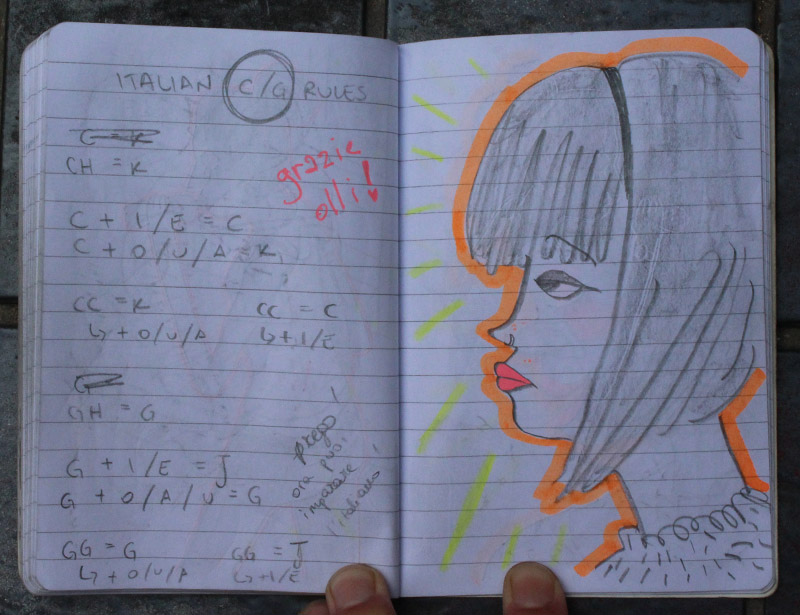 ITALIAN C/G RULES
CH = K
grazie
olli!
C + I/E = C
C + O/U/A = K
CC = K CC = C
↳ + O/U/A ↳ + I/E
GH = G
G + I/E = J
G + O/A/U = G
prego!
ora puoi
imparare
italiano!
GG = G GG = J
↳ + O/U/A ↳ + I/E